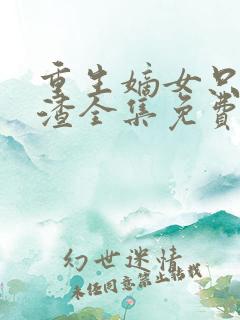 重生嫡女只
渣全集免费
幻世迷情
未经同意禁止转载